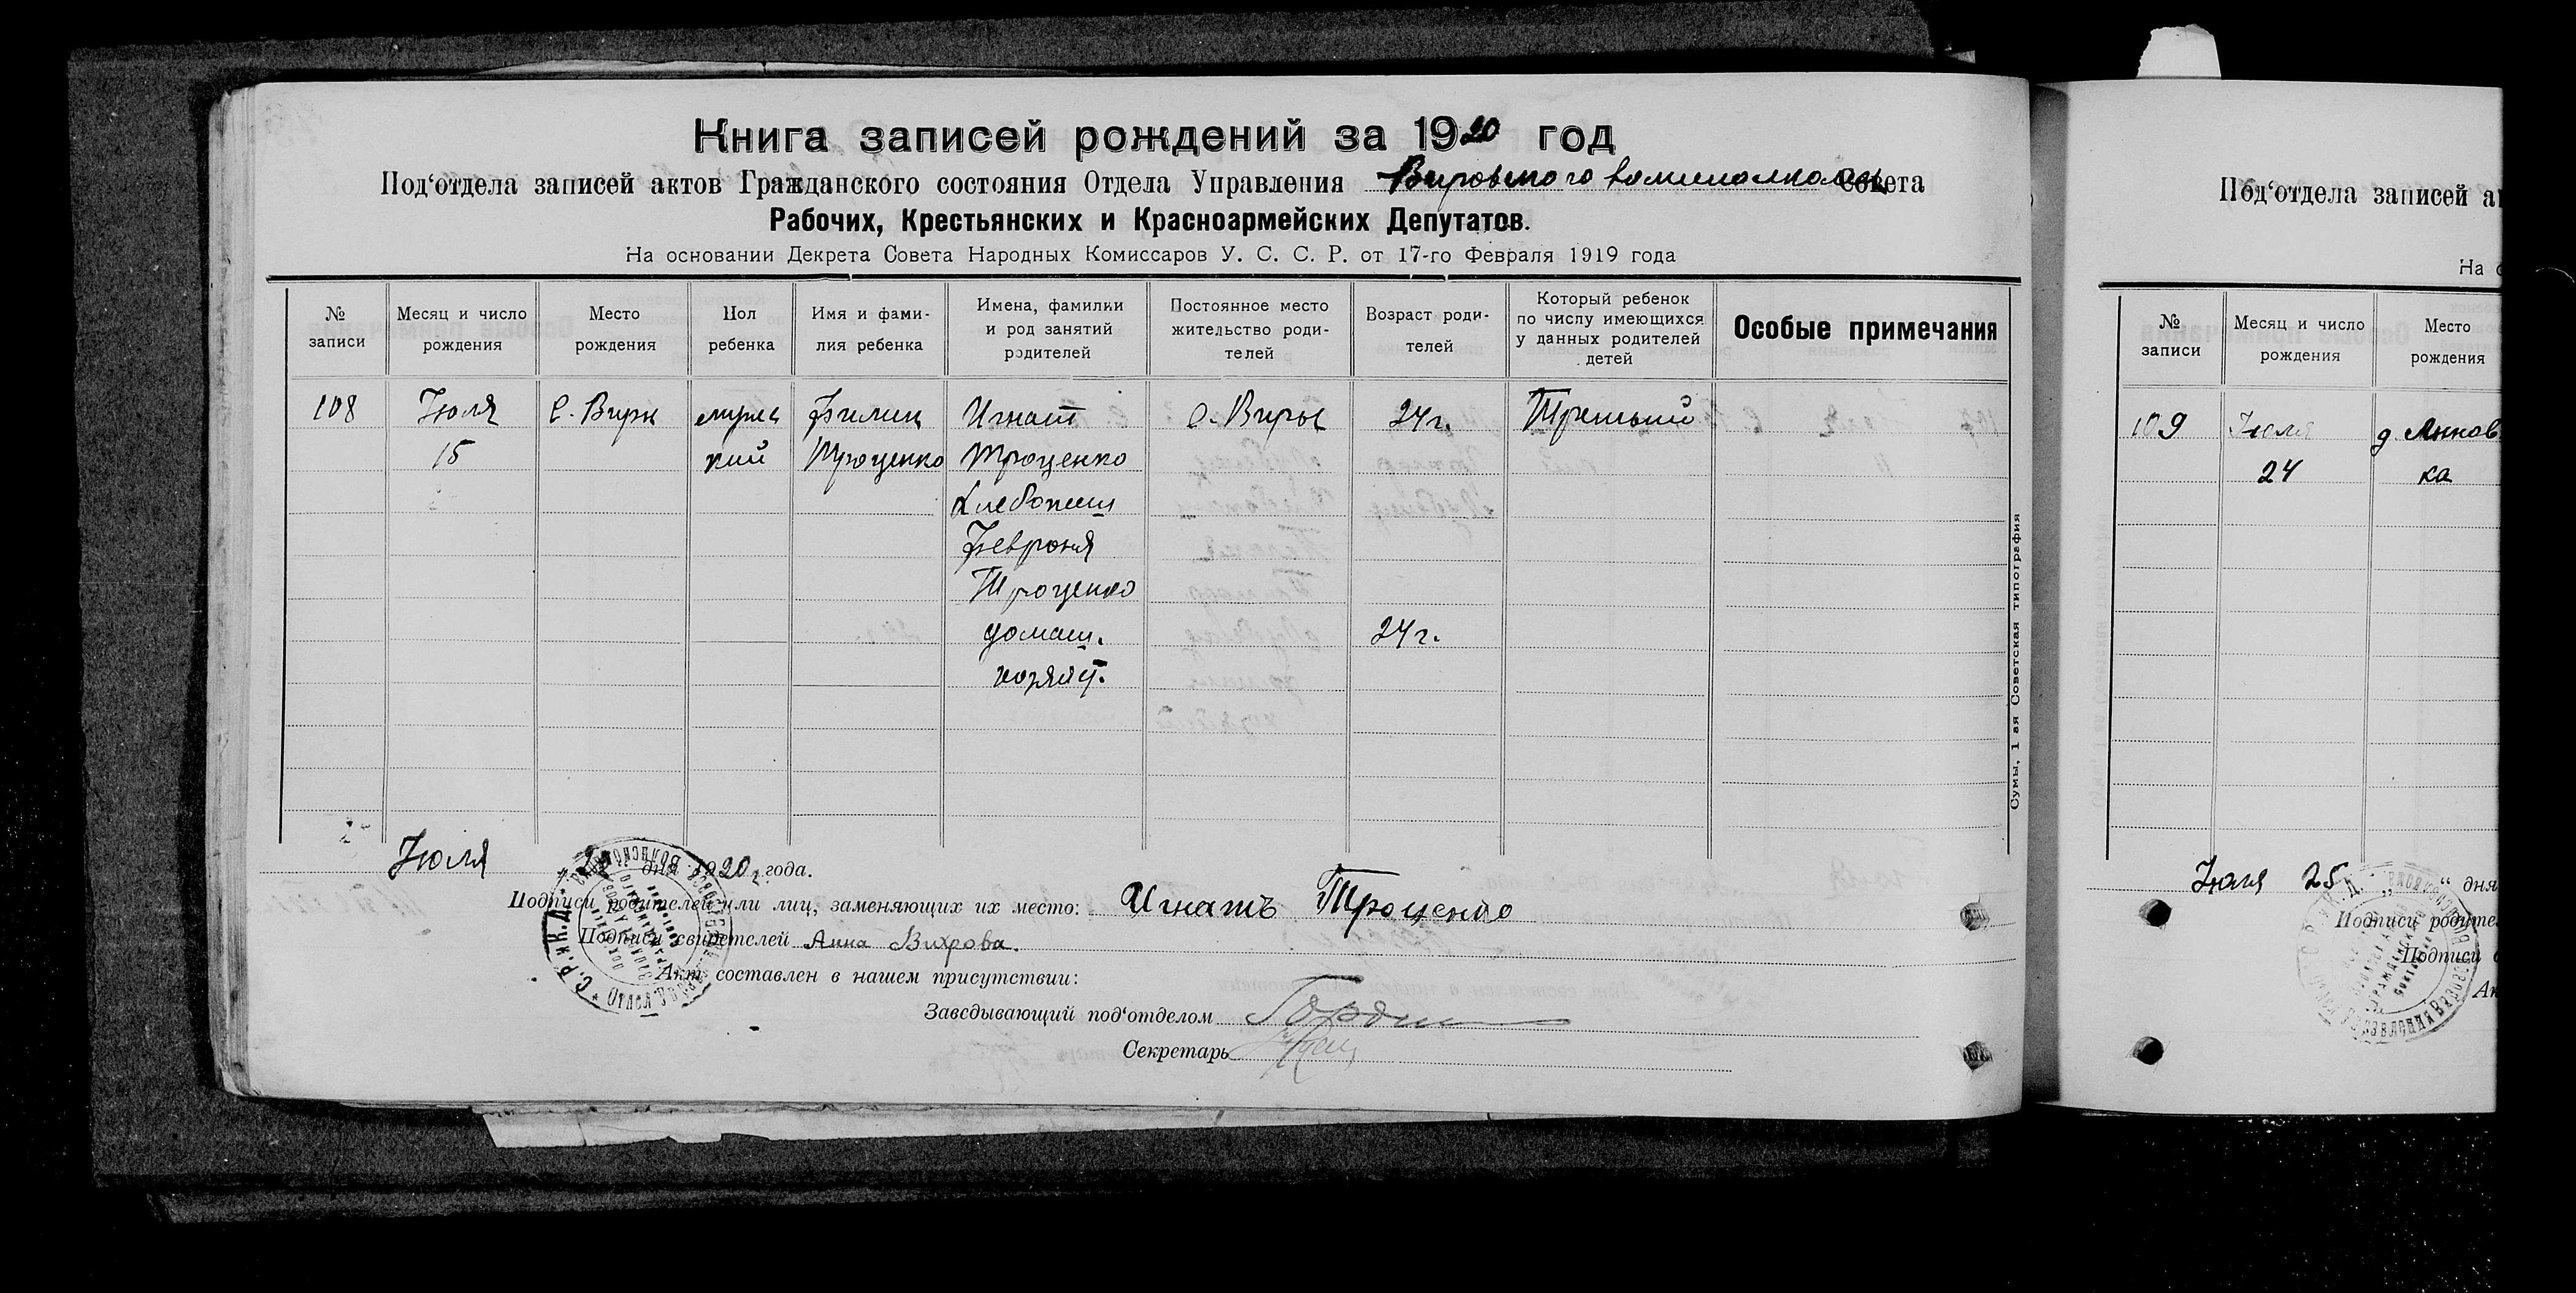 Книга записей рождений за 1920 год
Под‘отдела записей актов Гражданского состояния Отдела Управления Вировского Совета
Рабочих, Крестьянских и Красноармейских Депутатов.
На основании Декрета Совета Народных Комиссаров У. С. С. Р. от 17-го Февраля 1919 года
№ записи
Месяц и число рождения
Место рождения
Пол ребенка
Имя и фами-
лия ребенка
Имена, фамилии
и род занятий
родителей
Постоянное место
жительство роди-
телей
Возраст роди-
телей
Который ребенок
по числу имеющихся
у данных родителей
детей
Особые примечания
108 Июля с. Виры мужс Филип Игнат с. Виры 24 г. Третьий
15 кий Троценко Троценко
Хлебопаш
Феврония
Троценко
домаш. 24 г.
хозяйт.
Сумы, 1 ая Советская типография
Июля дня 1920 г. года.
Подписи родителей или лиц, заменяющих их место: Игнатъ Троценко
Подписи свидетелей Анна Вихрова.
Акт составлен в нашем присутствии:
Заведывающий под‘отделом
Секретарь
Под‘отдела записей а
На о
№ записи
Месяц и число рождения
Место рождения
109 Июля д. Аннов
24 ка
Июля 25 „ “ дня
Подписи родите
Подписи с
Ак